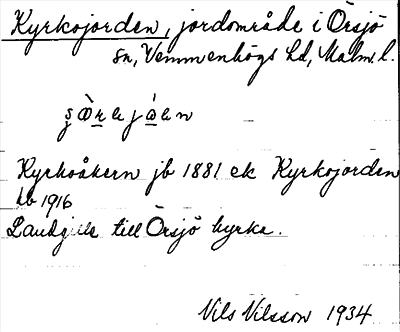 Kyrkojorden, jordområde i Örsjö
sn, Vemmenhögs hd, Malm. l.
Kyrkoåkern jb 1881 ek Kyrkojorden
hb 1916
till Örsjö kyrka.
Nils Nilsson 1934